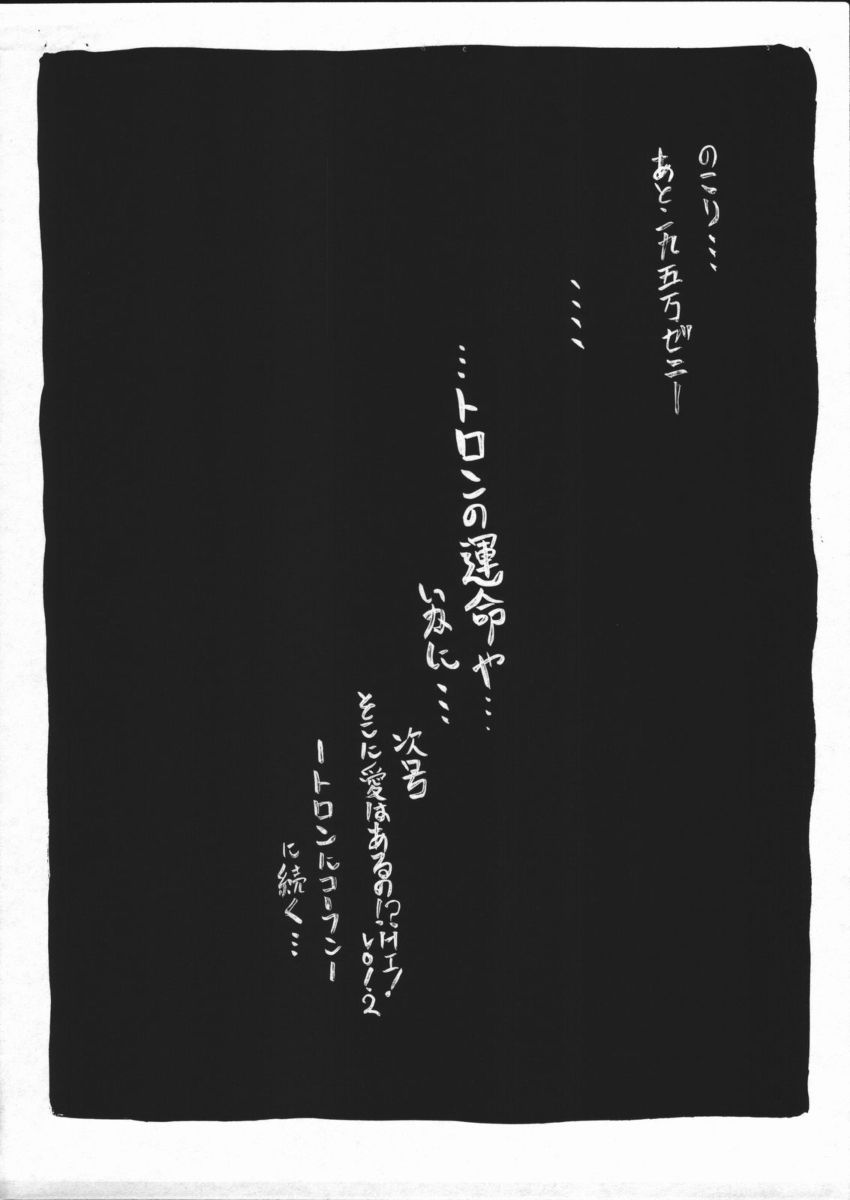 のこり……
あと一九五万ゼニー
……
…トロンの運命や…
いかに……
次号
そこに愛はあるの!?HI! vol.2
ートロンにコーフンー
に続く…